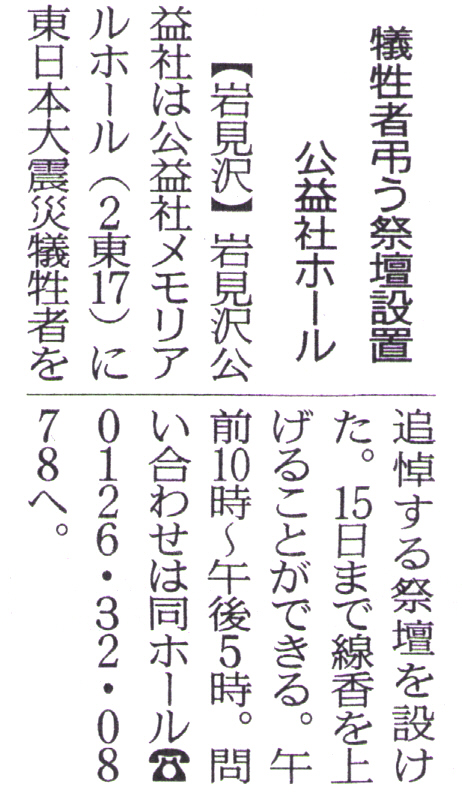 犠牲者弔う祭壇設置
公益社ホール
【岩見沢】岩見沢公
益社は公益社メモリア
ルホール（2東17）に
東日本大震災犠牲者を
追悼する祭壇を設け
た。15日まで線香を上
げることができる。午
前10時～午後5時。問
い合わせは同ホール☎
0126・32・08
78へ。